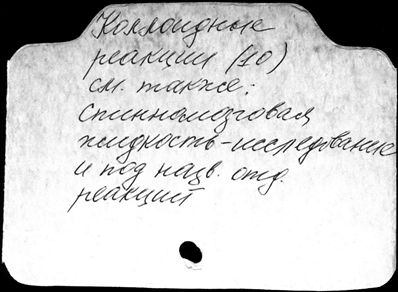 Коллоидные
реакции (10)
см. также:
спинномозговая
жидкость-исследование
и под назв. отд.
реакций